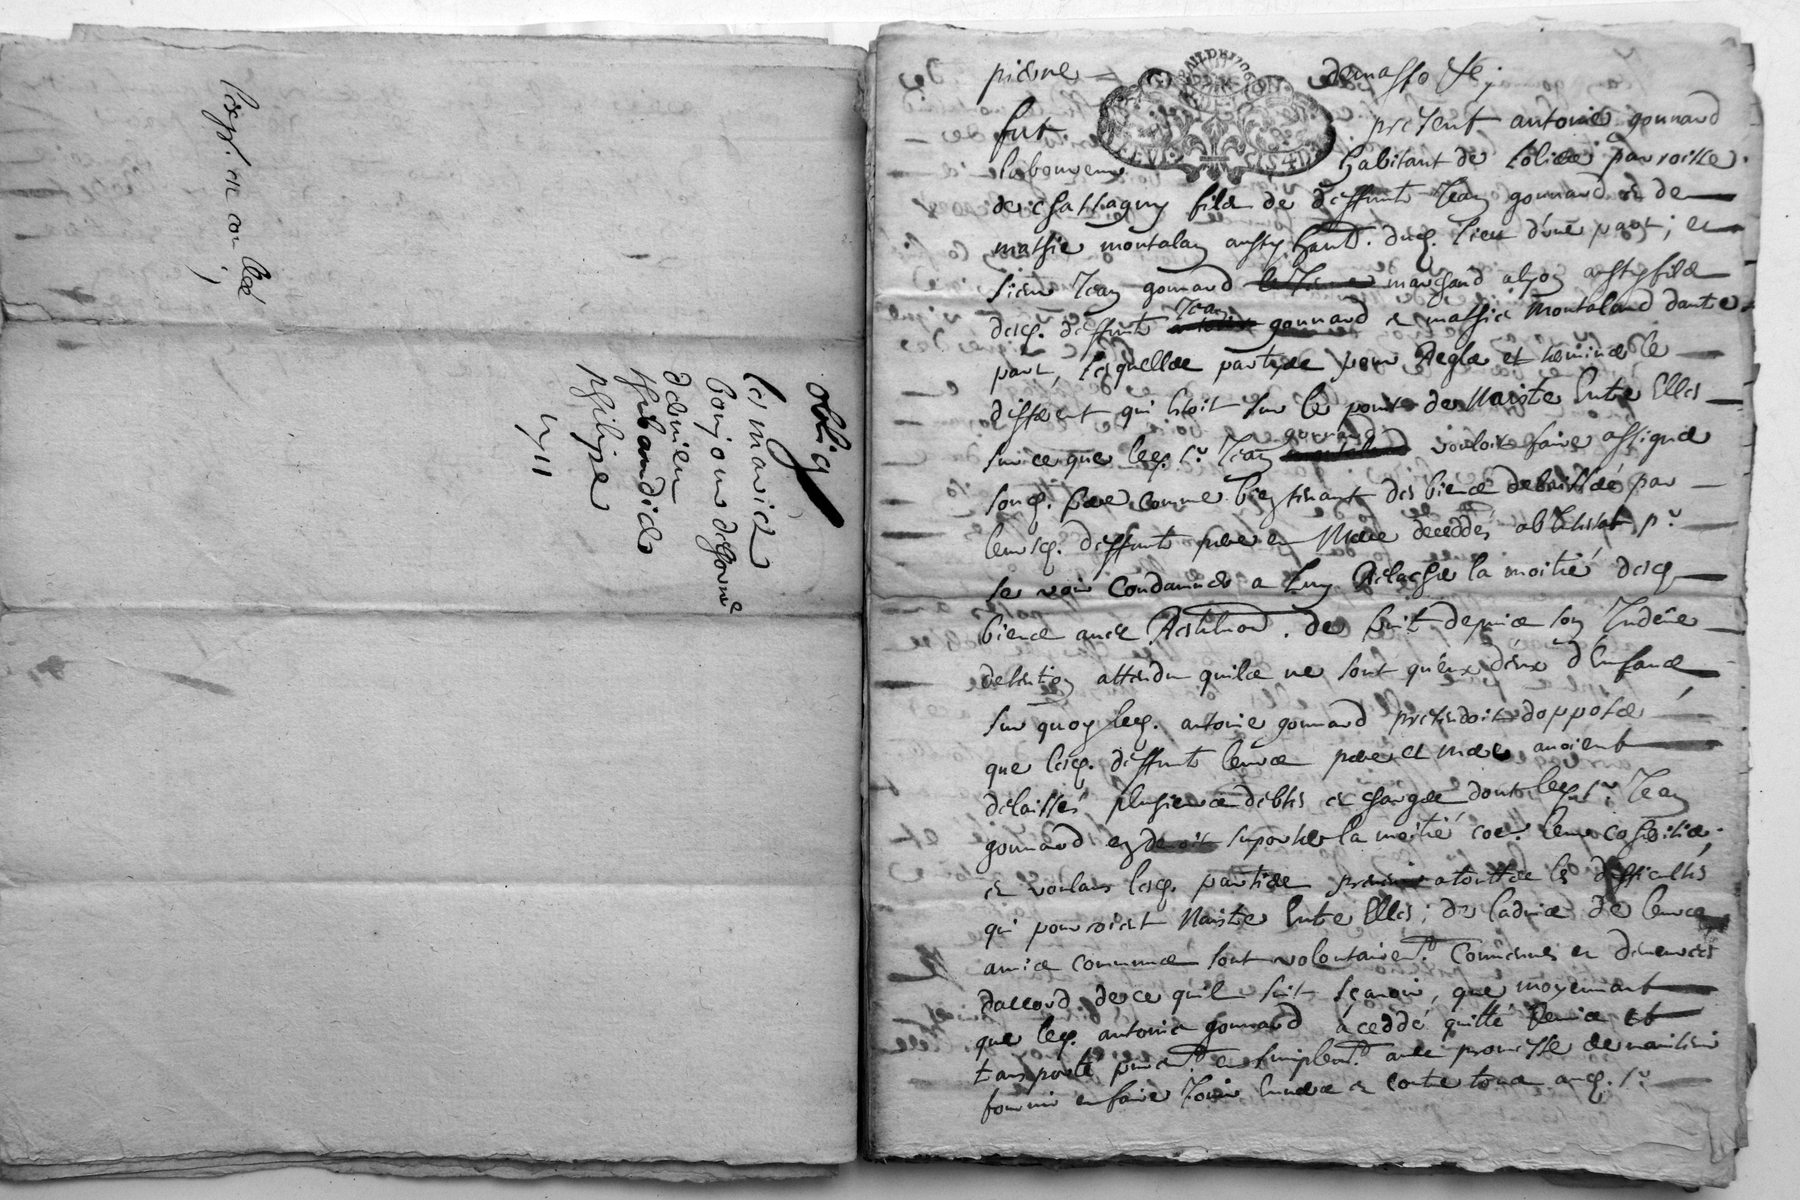 Expl. et conllé
oblig
les mariéz
bonjour de
à drivieu
philipe
1711
pierre
fut present antoine gonnard
laboureur habitant de parroisse
de chassagny fils de deffunt Jean gonnard et de
massie montalan aussy hant. dud. lieu d'une part; et
sieur Jean gonnard marchand a lyon aussy fils
desd. deffunts Jean gonnard et massie montaland dautre
part, lesquelles parties pour Regler et terminer le
different qui estoit sur le point de Naistre Entre Elles
sur ce que led. sr. Jean gonnard vouloit faire assigner
sond. frere comme bien tenant des biens delaissés par
leursd. deffunts pere et Mere deceddés ab Intestat pr.
se voir Condamner a luy Relacher la moitié desd.
biens avec Restituon. de fruit depuis son Indeue
detention attendu quils ne sont qu'eux deux d'Enfans
sur quoy led. antoine gonnard pretendoit dopposer
que lesd. deffunts leurs pere et Mere avoient
delaissés plusieurs debtes et charges dont led. sr. Jean
gonnard en devoit suporter la moitié coe. leur coheritier,
et voulans lesd. parties prevenir a touttes les difficultés
qui pourroient Naistre Entre Elles; de l'advis de leurs
amis communs sont volontairemt. Convenus et demeurés
daccord de ce quil suit sçavoir, que moyennant
que led. antoine gonnard a ceddé quitté Remis et
transporté puremt. et simplemt. avec promesse de maintenir
fournir et faire Jouir Envers et contre tous aud. sr.